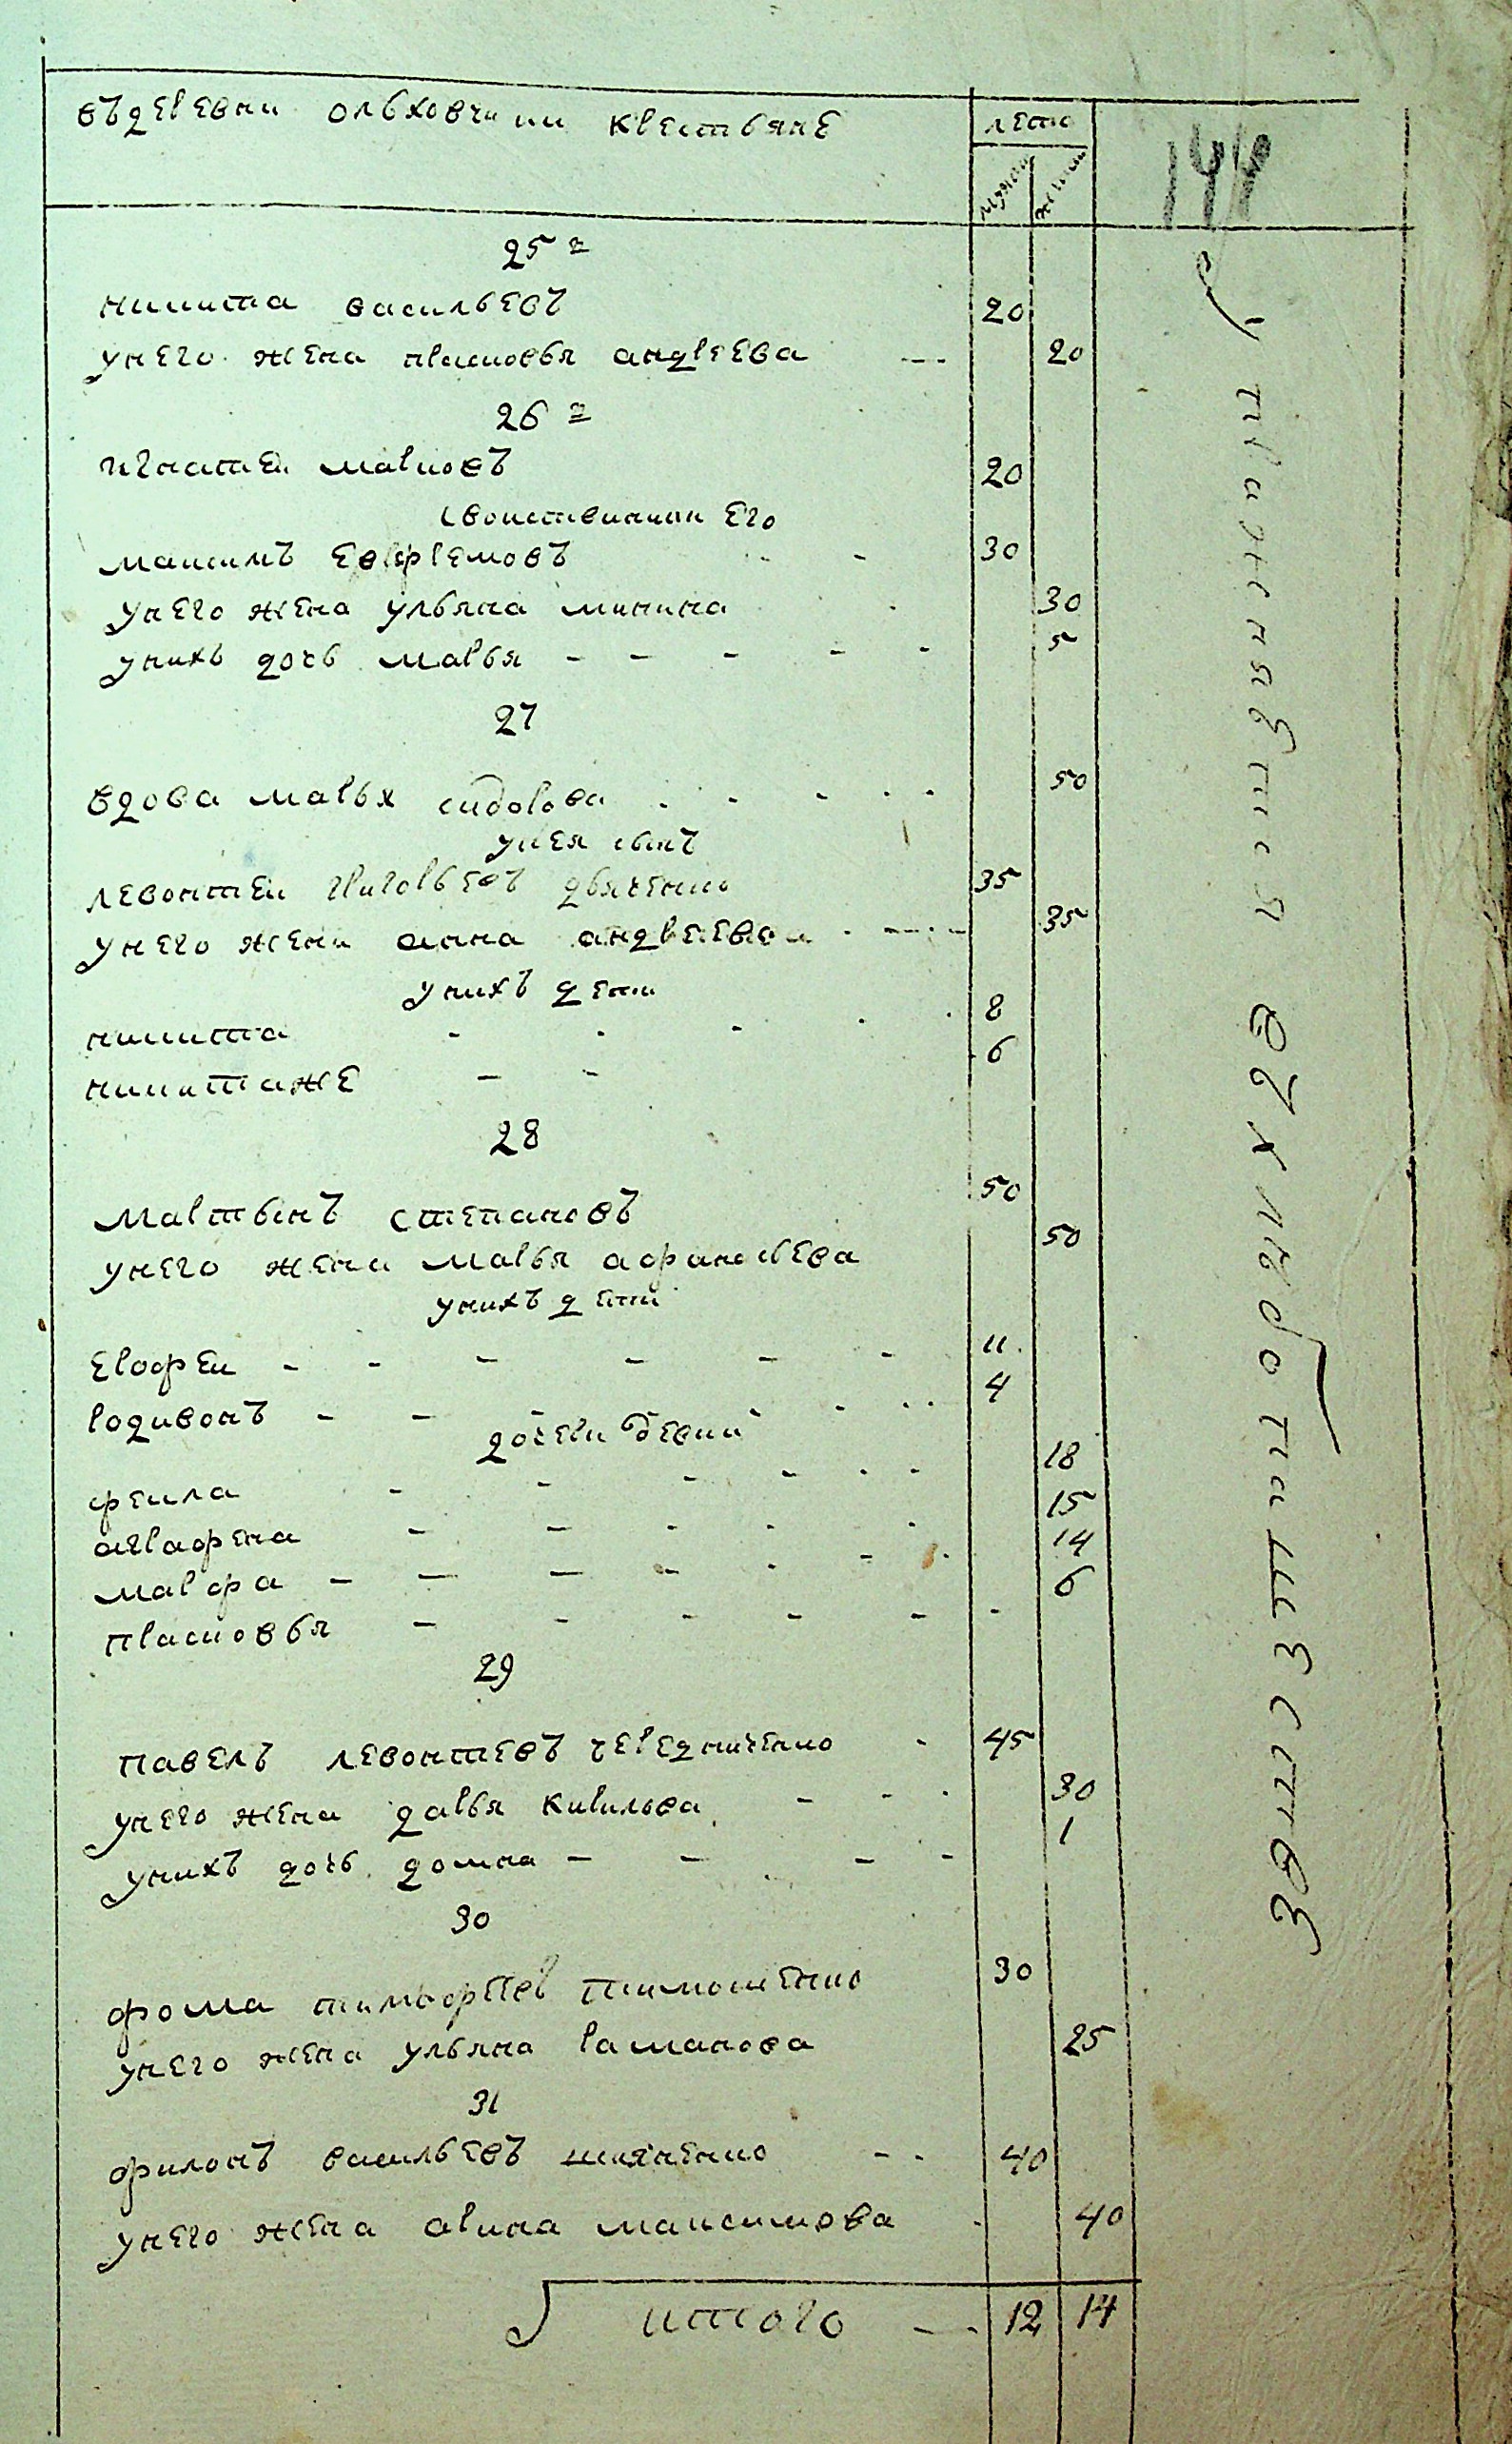 въдеревни ольховчики крестьяне
лета
мужска
женска
144
25 е
никита васильевъ 20
унего жена прасковья андреева --- 20
26 е
игнатеи марковъ 20
своиственики его
максимъ еверфремовъ - 30
унего жена ульяна минина 30
унихъ дочь марья - - - - - 5
27
вдова марья сидорова 50
унея сынъ
левонтеи григорьевъ дьяченко 35
унего жена анна андреева 35
унихъ дети
никита 8
никитаже - - 6
28
мартынъ степановъ 50
унего жена марья афанасьева 50
унихъ дети
ерофеи - - - - - - 11
родивонъ - - - 4
дочери девки
фекла 18
аграфена 15
марфа 14
прасковья 6
29
павелъ левонтевъ чередниченко 45
унего жена дарья кирилова 30
унихъ дочь домна - - - - 1
30
фома тимофеевъ тимошенко 30
унего жена ульяна раманова 25
31
филонъ васильевъ 40
унего жена арина максимова 40
итого -- 12 14